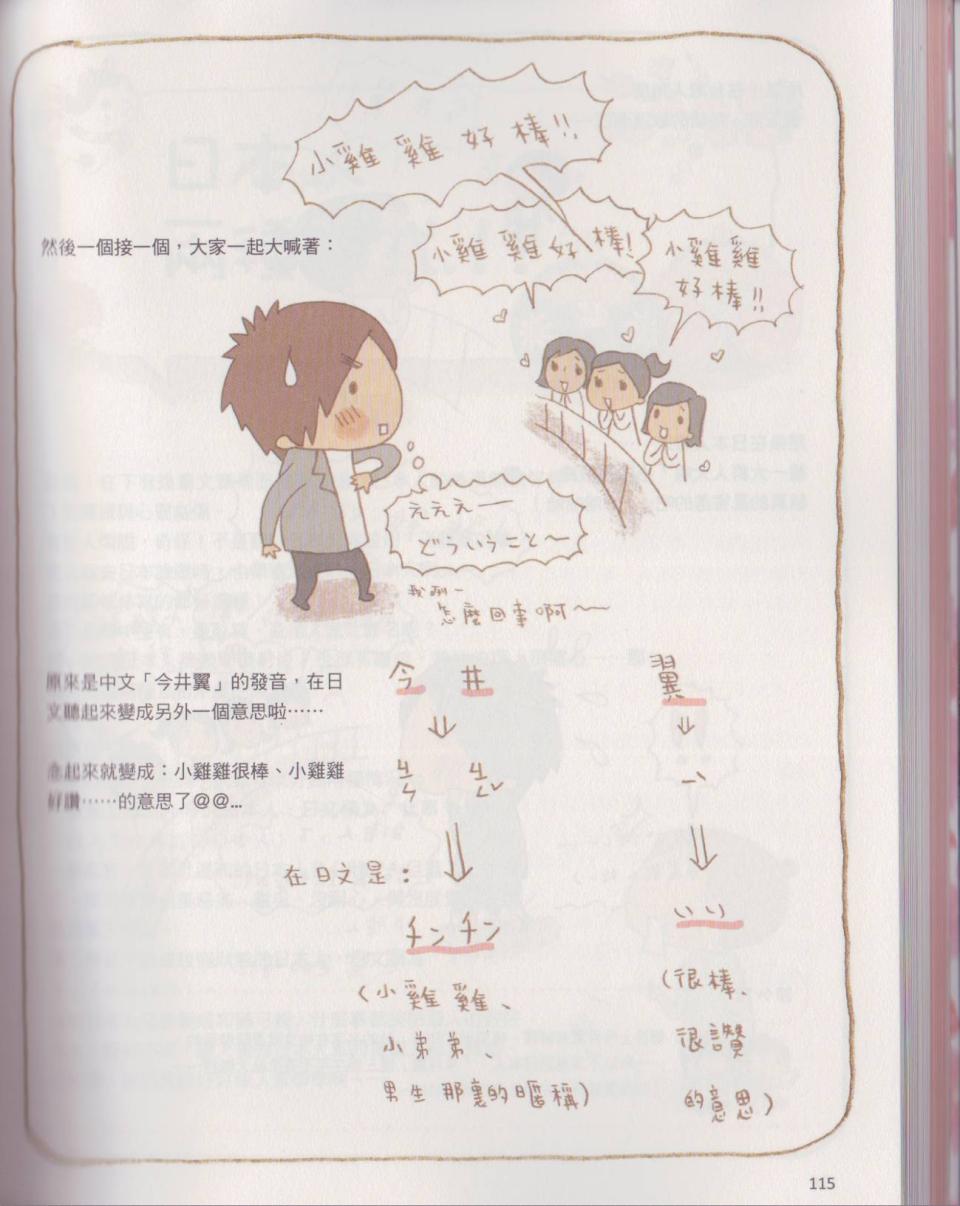 小雞雞好棒!!
小雞雞好棒!
小雞雞
好棒!!
然後一個接一個，大家一起大喊著：
えええ——
どういうこと〜
我咧〜
怎麼回事啊〜
原來是中文「今井翼」的發音，在日
文聽起來變成另外一個意思啦……
念起來就變成：小雞雞很棒、小雞雞
好讚……的意思了@@...
今 井
翼
⇓
⇓
ㄐㄣ ㄐㄧㄥˇ
ㄧˋ
⇓
⇓
在日文是：
チンチン
いい
(小雞雞、
小弟弟、
男生那裏的暱稱)
(很棒、
很讚
的意思)
115